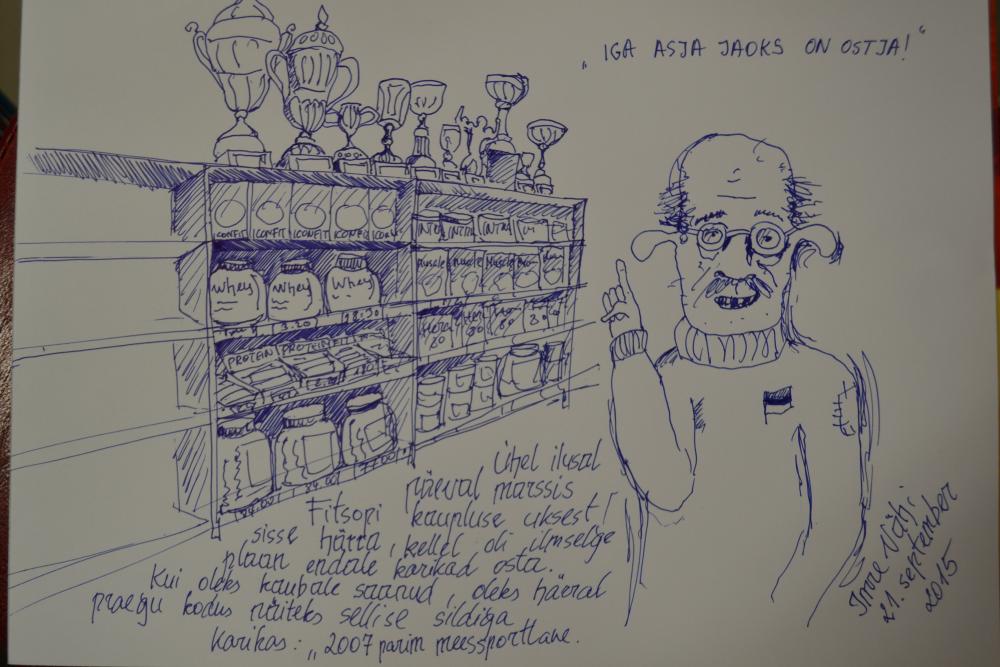 „IGA ASJA JAOKS ON OSTJA!“
ICONFIT ICONFIT ICONFIT ICONFIT
INTRA INTRA INTRA
Whey Whey Whey
Muscle Muscle Muscle
3.20 18.20
80 80 80 80
PROTEIN PROTEIN
Ühel ilusal
päeval marssis
Fitsopi kaupluse uksest
sisse härra, kellel oli ilmselge
plaan endale karikad osta.
Kui oleks kaubale saanud, oleks härral
praegu kodus näiteks sellise sildiga
karikas: „2007 parim meessportlane.
21. september
2015